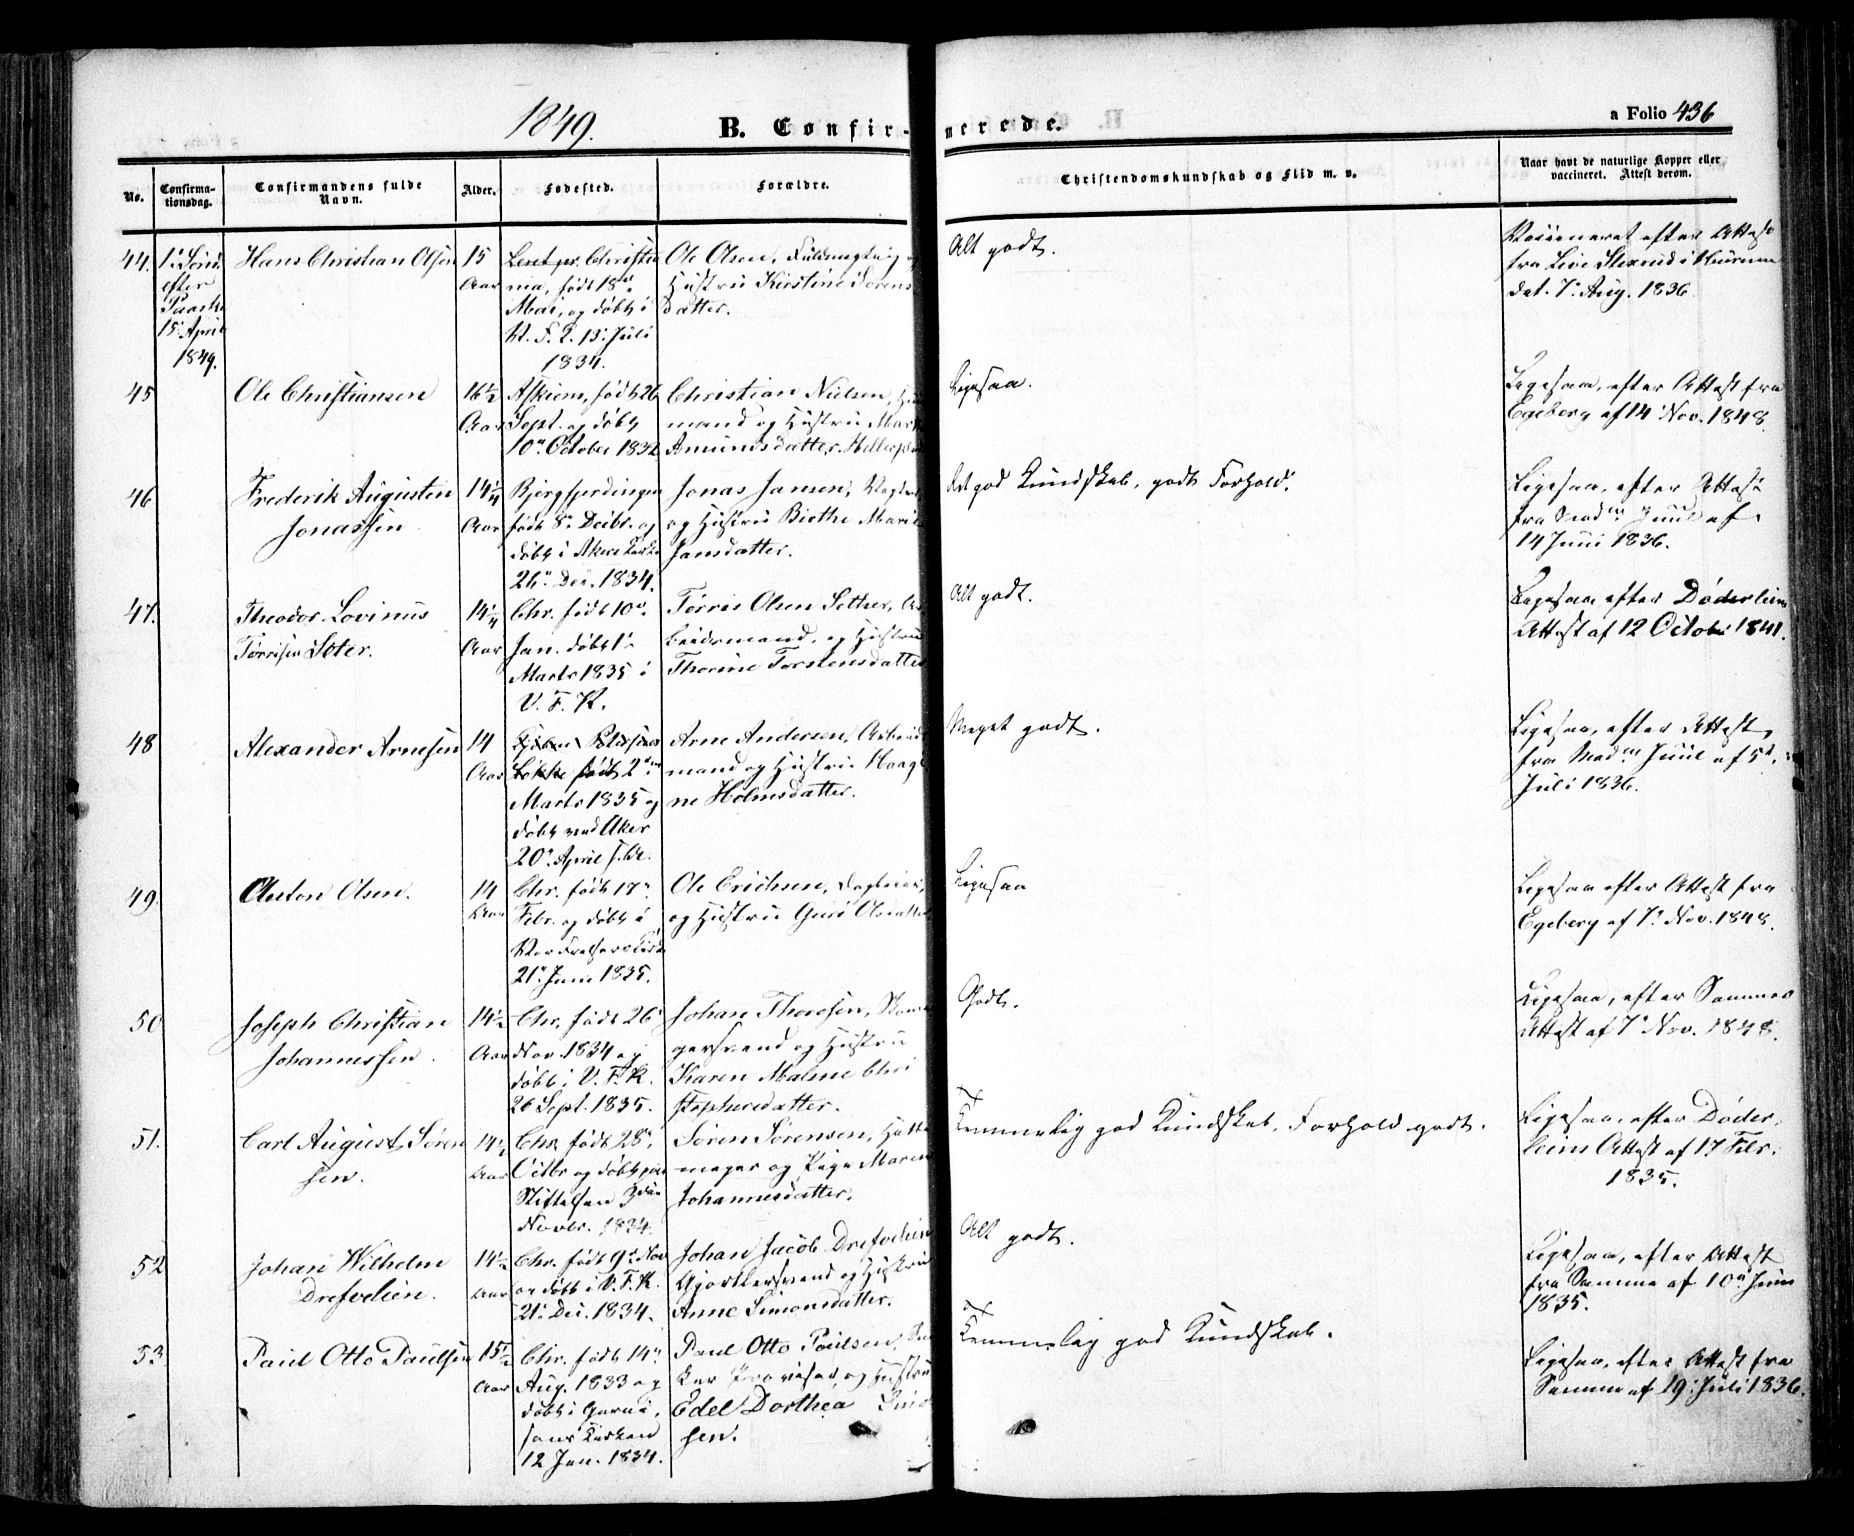 1849.
B. Confirmerede.
a Folio 436
No.
Confirmationsdag.
Confirmandens fulde Navn.
Alder.
Fødested.
Forældre.
Christendomskundskab og Flid m. v.
Naar havt de naturlige Kopper eller vaccineret. Attest derom.
44.
efter
Paaske
15. April
1849.
Hans Christian Olsen
15
Aar
Christia
na, født 18de
Mai, og døbt i
V. F. K. 13. Juli
1834.
Ole Olsen, Fuldmægtig og
Hustru Kirstine Sørens
datter.
Alt godt.
Vaccineret efter Attest
fra
dat. 7. Aug. 1836.
45
Ole Christiansen
16½
Aar
født 26
Sept. og døbt
10. October 1832
Christian Nielsen,
mand og Hustru
Amundsdatter
Ligesaa.
Ligesaa, efter Attest fra
Egeberg af 14 Nov. 1848.
46
Frederik Augustin
Jonassen
14¼
Aar
Bjerg
født 8. Decbr. og
døbt i Akers Kirke
26. Dec. 1834.
Jonas Jansen,
og Hustru Birthe Marie
Jansdatter.
god Kundskab, godt Forhold.
Ligesaa, efter Attest
fra Madm Juul af
14 Juni 1836.
47.
Theodor Lovinus
Tørrisen Seter.
14¼
Aar
Chr. født 10.
Jan. døbt 1.
Marts 1835 i
V. F. K.
Tørris Olsen Sether, Ar
beidsmand, og Hustru
Thorine Torstensdatter
Alt godt.
Ligesaa, efter Døderlein
Attest af 12 Octobr 1841.
48
Alexander Arnesen
14
Aar
Løkke født 2den
Marts 1835 og
døbt ved Aker
20. April s. A.
Arne Andersen, Arbeids
mand og Hustru
ne Holmsdatter.
Meget godt.
Ligesaa, efter Attest
fra Madm Juul af 5t.
Juli 1836.
49.
Anton Olsen.
14
Aar
Chr. født 17.
Febr. og døbt i
Vor Frelsers Kirke
21. Juni 1835.
Ole Erichsen,
og Hustru Guri Olsdatter
Ligesaa
Ligesaa efter Attest fra
Egeberg af 7. Nov. 1848.
50
Joseph Christian
Johannessen.
14½
Aar
Chr. født 26.
Nov. 1834 og
døbt i V. F. K.
26 Sept. 1835.
Johan Thoresen,
gersvend og Hustru
Karen Malene Chri
stophersdatter.
Godt.
Ligesaa, efter Sammes
Attest af 7. Nov. 1848.
51.
Carl August Søren
sen.
14½
Aar
Chr. født 28.
Octbr og døbt paa
Stiftelsen 3die
Novbr. 1834.
Søren Sørensen, Hatte
mager og Pige Maren
Johannesdatter.
Temmelig god Kundskab, Forhold godt.
Ligesaa, efter Døder
leins Attest af 17 Febr.
1835.
52
Johan Wilhelm
Drefvelien.
14½
Aar
Chr. født 9. Nov
og døbt i V. F. K.
21. Dec. 1834.
Johan Jacob Drefvelien
Gjørtlersvend og Hustru
Anne Simonsdatter.
Alt godt.
Ligesaa, efter Attest
fra Samme af 10. Juni
1835.
53
Paul Otto Paulsen
15½
Aar
Chr. født 14.
Aug. 1833 og
døbt i Garni
sons Kirken
12 Jan. 1834.
Paul Otto Paulsen,
og Hustru
Edel Dorthea
sen.
Temmelig god Kundskab.
Ligesaa, efter Attest fra
Samme af 19. Juli 1836.